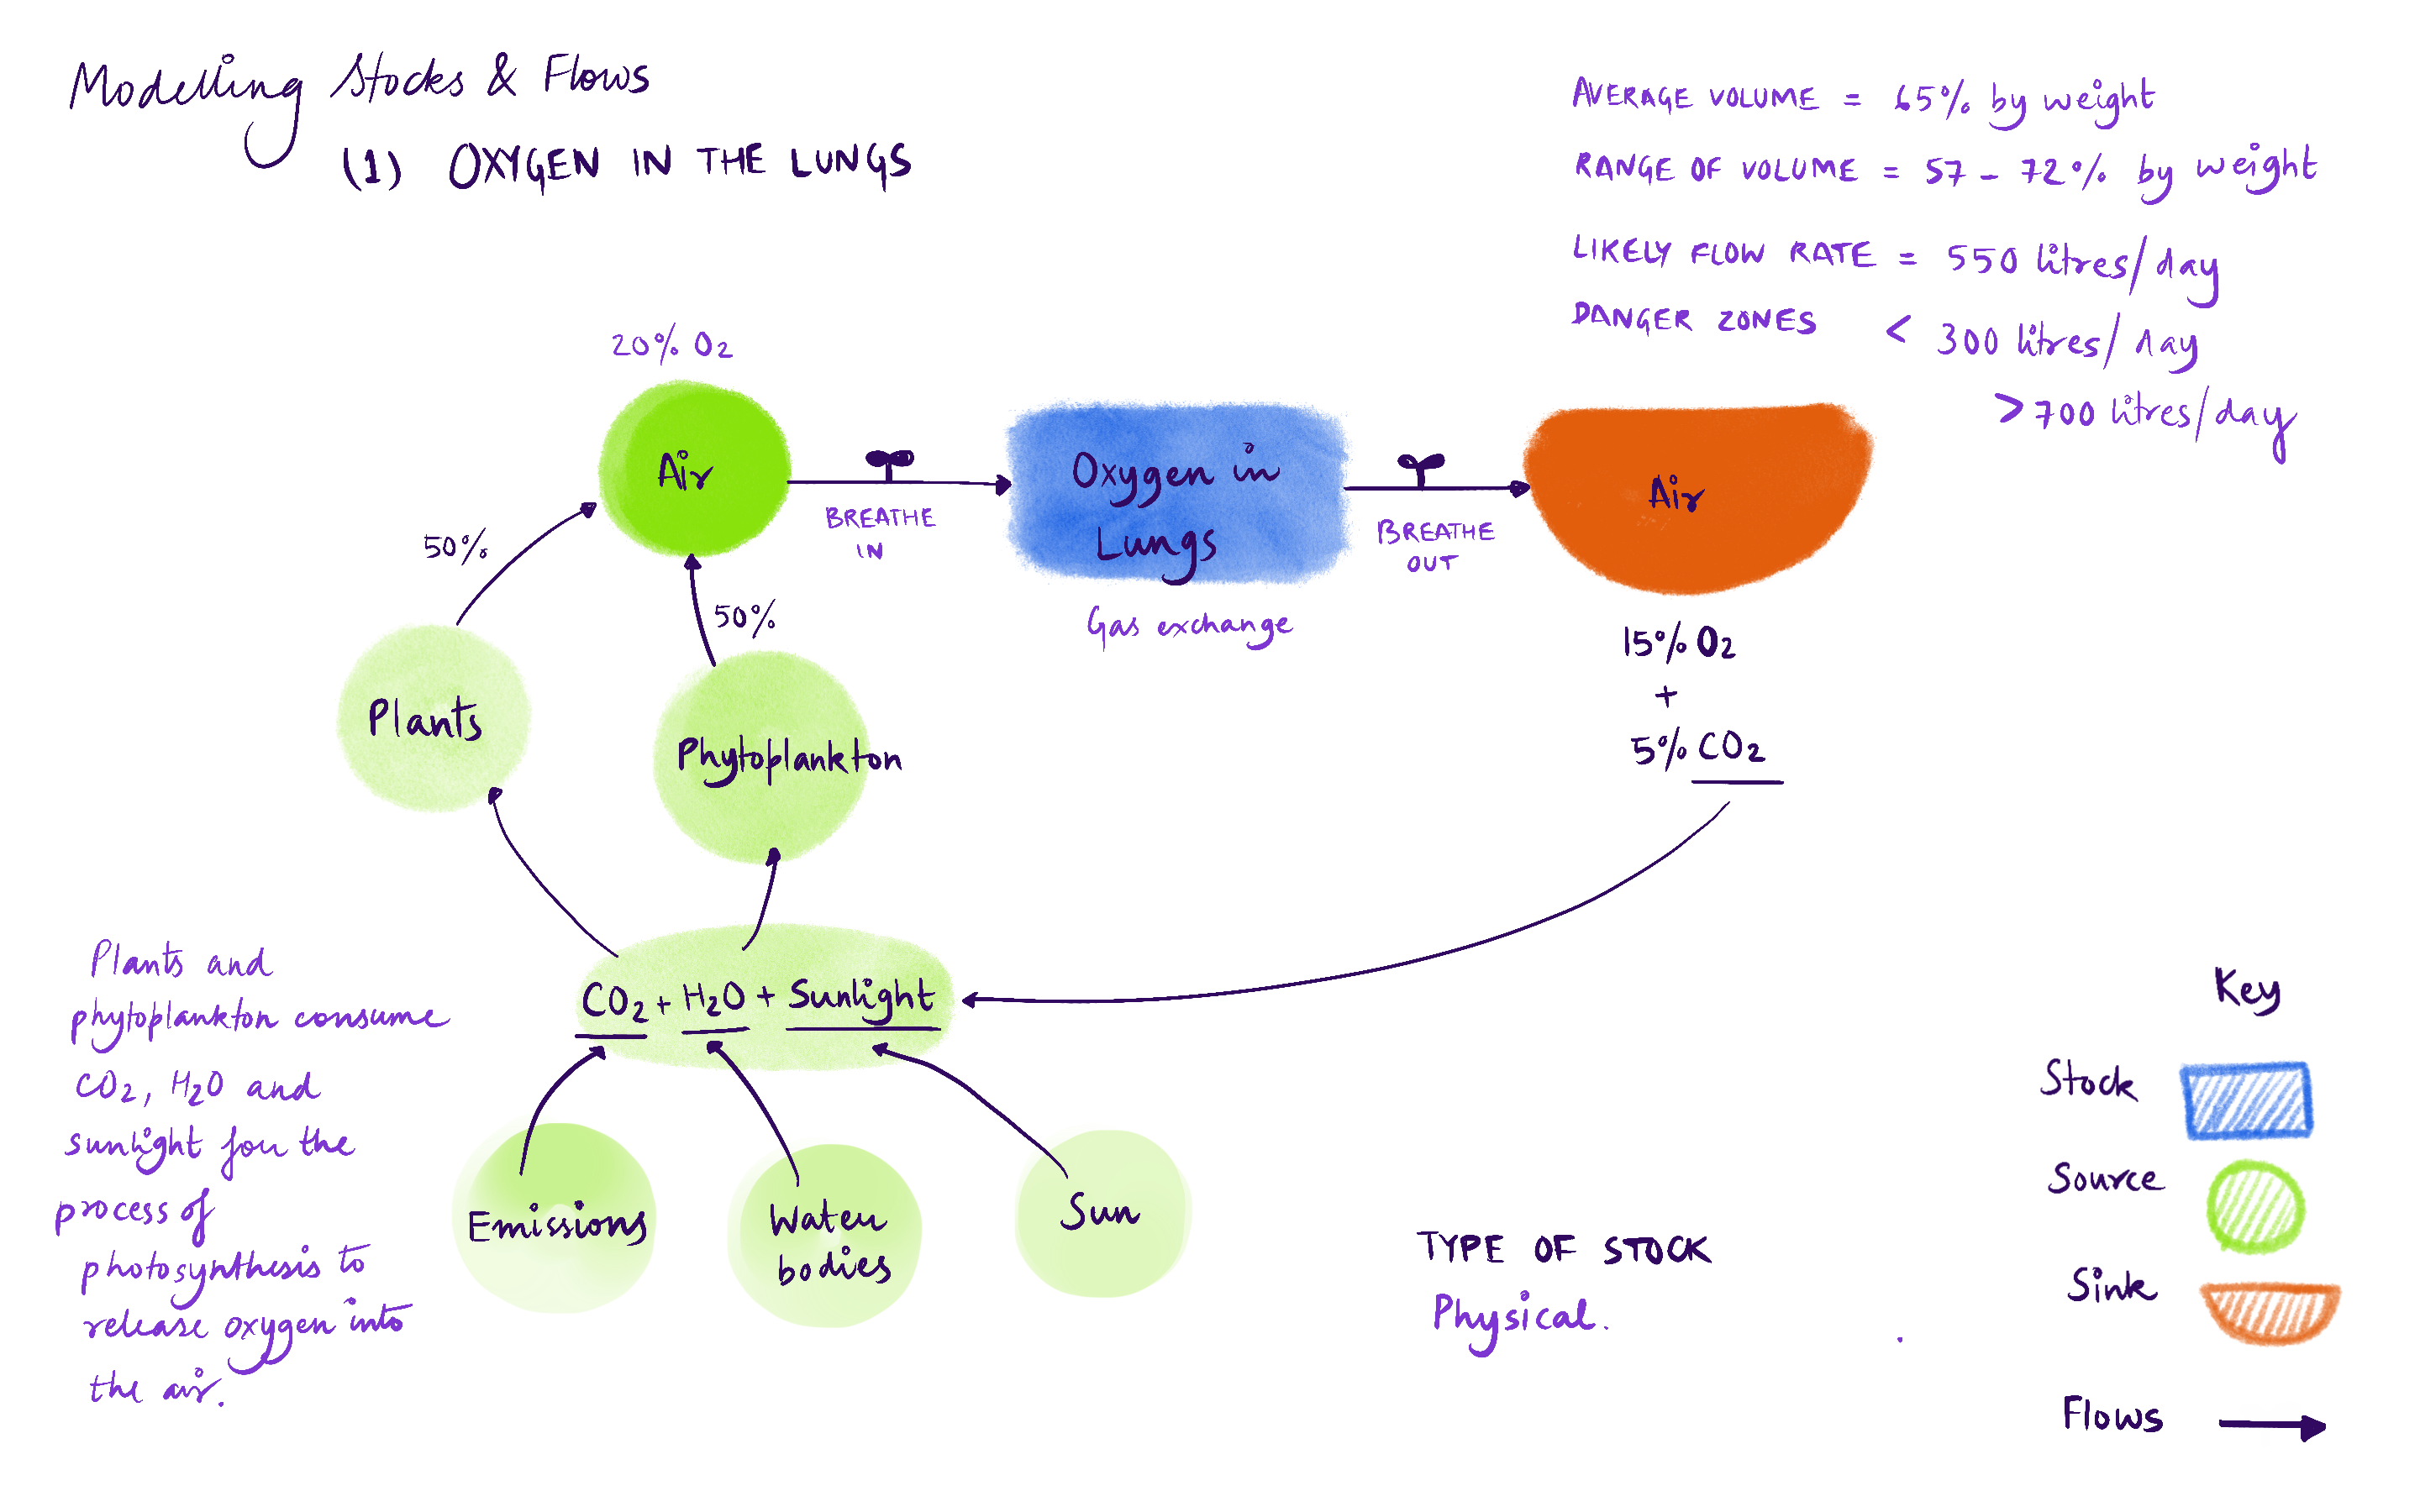 Modelling Stocks & Flows
(1) OXYGEN IN THE LUNGS
AVERAGE VOLUME = 65% by weight
RANGE OF VOLUME = 57 - 72% by weight
LIKELY FLOW RATE = 550 litres/day
DANGER ZONES < 300 litres/day
> 700 litres/day
20% O2
Air
BREATHE
IN
Oxygen in
Lungs
Gas exchange
BREATHE
OUT
Air
15% O2
+
5% CO2
50%
50%
Plants
Phytoplankton
CO2 + H2O + Sunlight
Emissions
Water
bodies
Sun
Plants and
phytoplankton consume
CO2, H2O and
sunlight for the
process of
photosynthesis to
release oxygen into
the air.
TYPE OF STOCK
Physical.
Key
Stock
Source
Sink
Flows